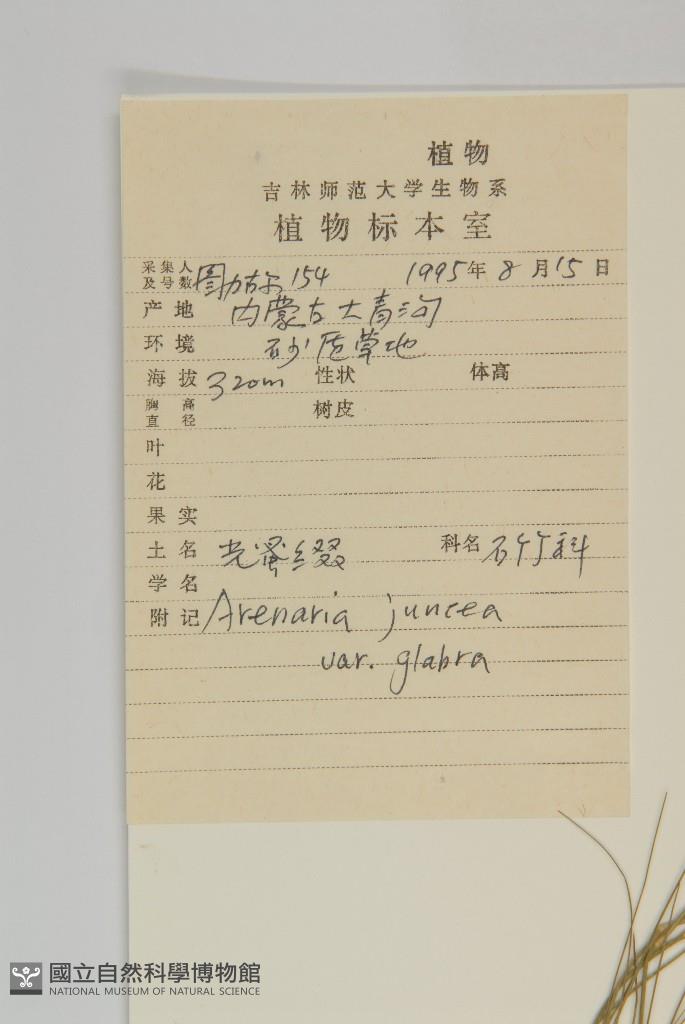 植物
吉林师范大学生物系
植物标本室
采集人
及号数 图力古尔 154 1995年 8月15日
产地 内蒙古大青沟
环境 砂质草地
海拔 320m 性状 体高
胸高
直径 树皮
叶
花
果实
土名 光蚤缀 科名 石竹科
学名
附记 Arenaria juncea
var. glabra
國立自然科學博物館
NATIONAL MUSEUM OF NATURAL SCIENCE